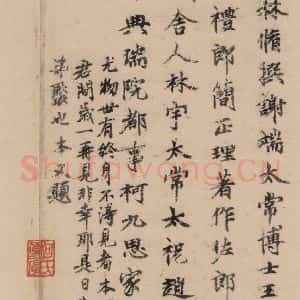 林脩撰謝端太常博士王
禮郎簡正理著作佐郎
舍人林宇太常太祝趙
典瑞院都事柯九思家
尤物世有終身不得見者本
君閒歲一再見非幸耶是日
本
題
Shufawang.cn